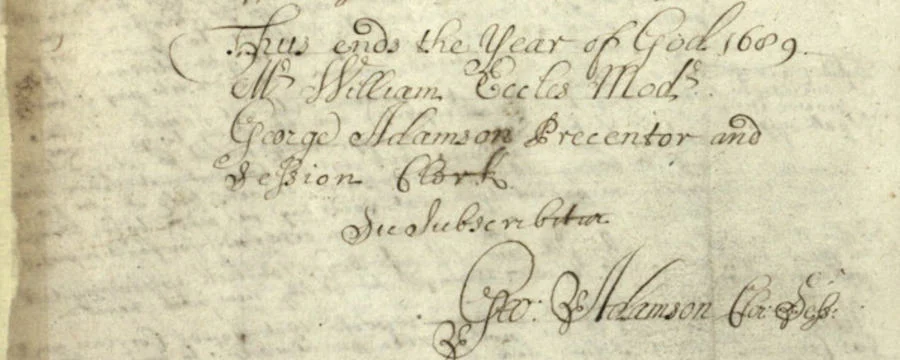 Thus ends the Year of God 1689.
Mr William Eccles Modr.
George Adamson Precentor and
Session Clerk
Sic Subscribitur
Geo: Adamson Clr: Sess: